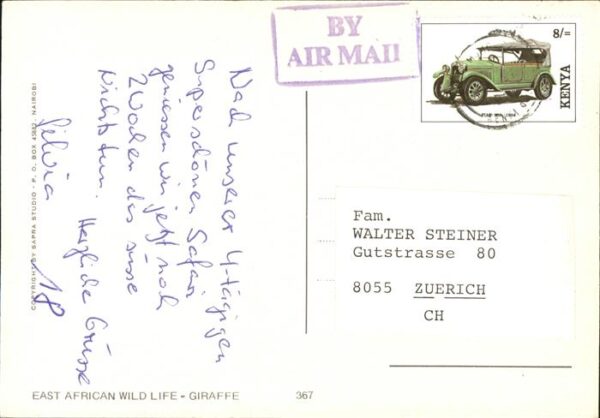 BY
AIR MAIL
8/=
KENYA
Nach unserer 4-tägigen
Supersdönen Safari
geniessen wir jetzt noch
2 Wochen das süsse
Nichtstun. Herzliche Grüsse
Silvia
Fam.
WALTER STEINER
Gutstrasse 80
8055 ZUERICH
CH
COPYRIGHT BY SAPRA STUDIO - P. O. BOX 45882 - NAIROBI
EAST AFRICAN WILD LIFE - GIRAFFE
367